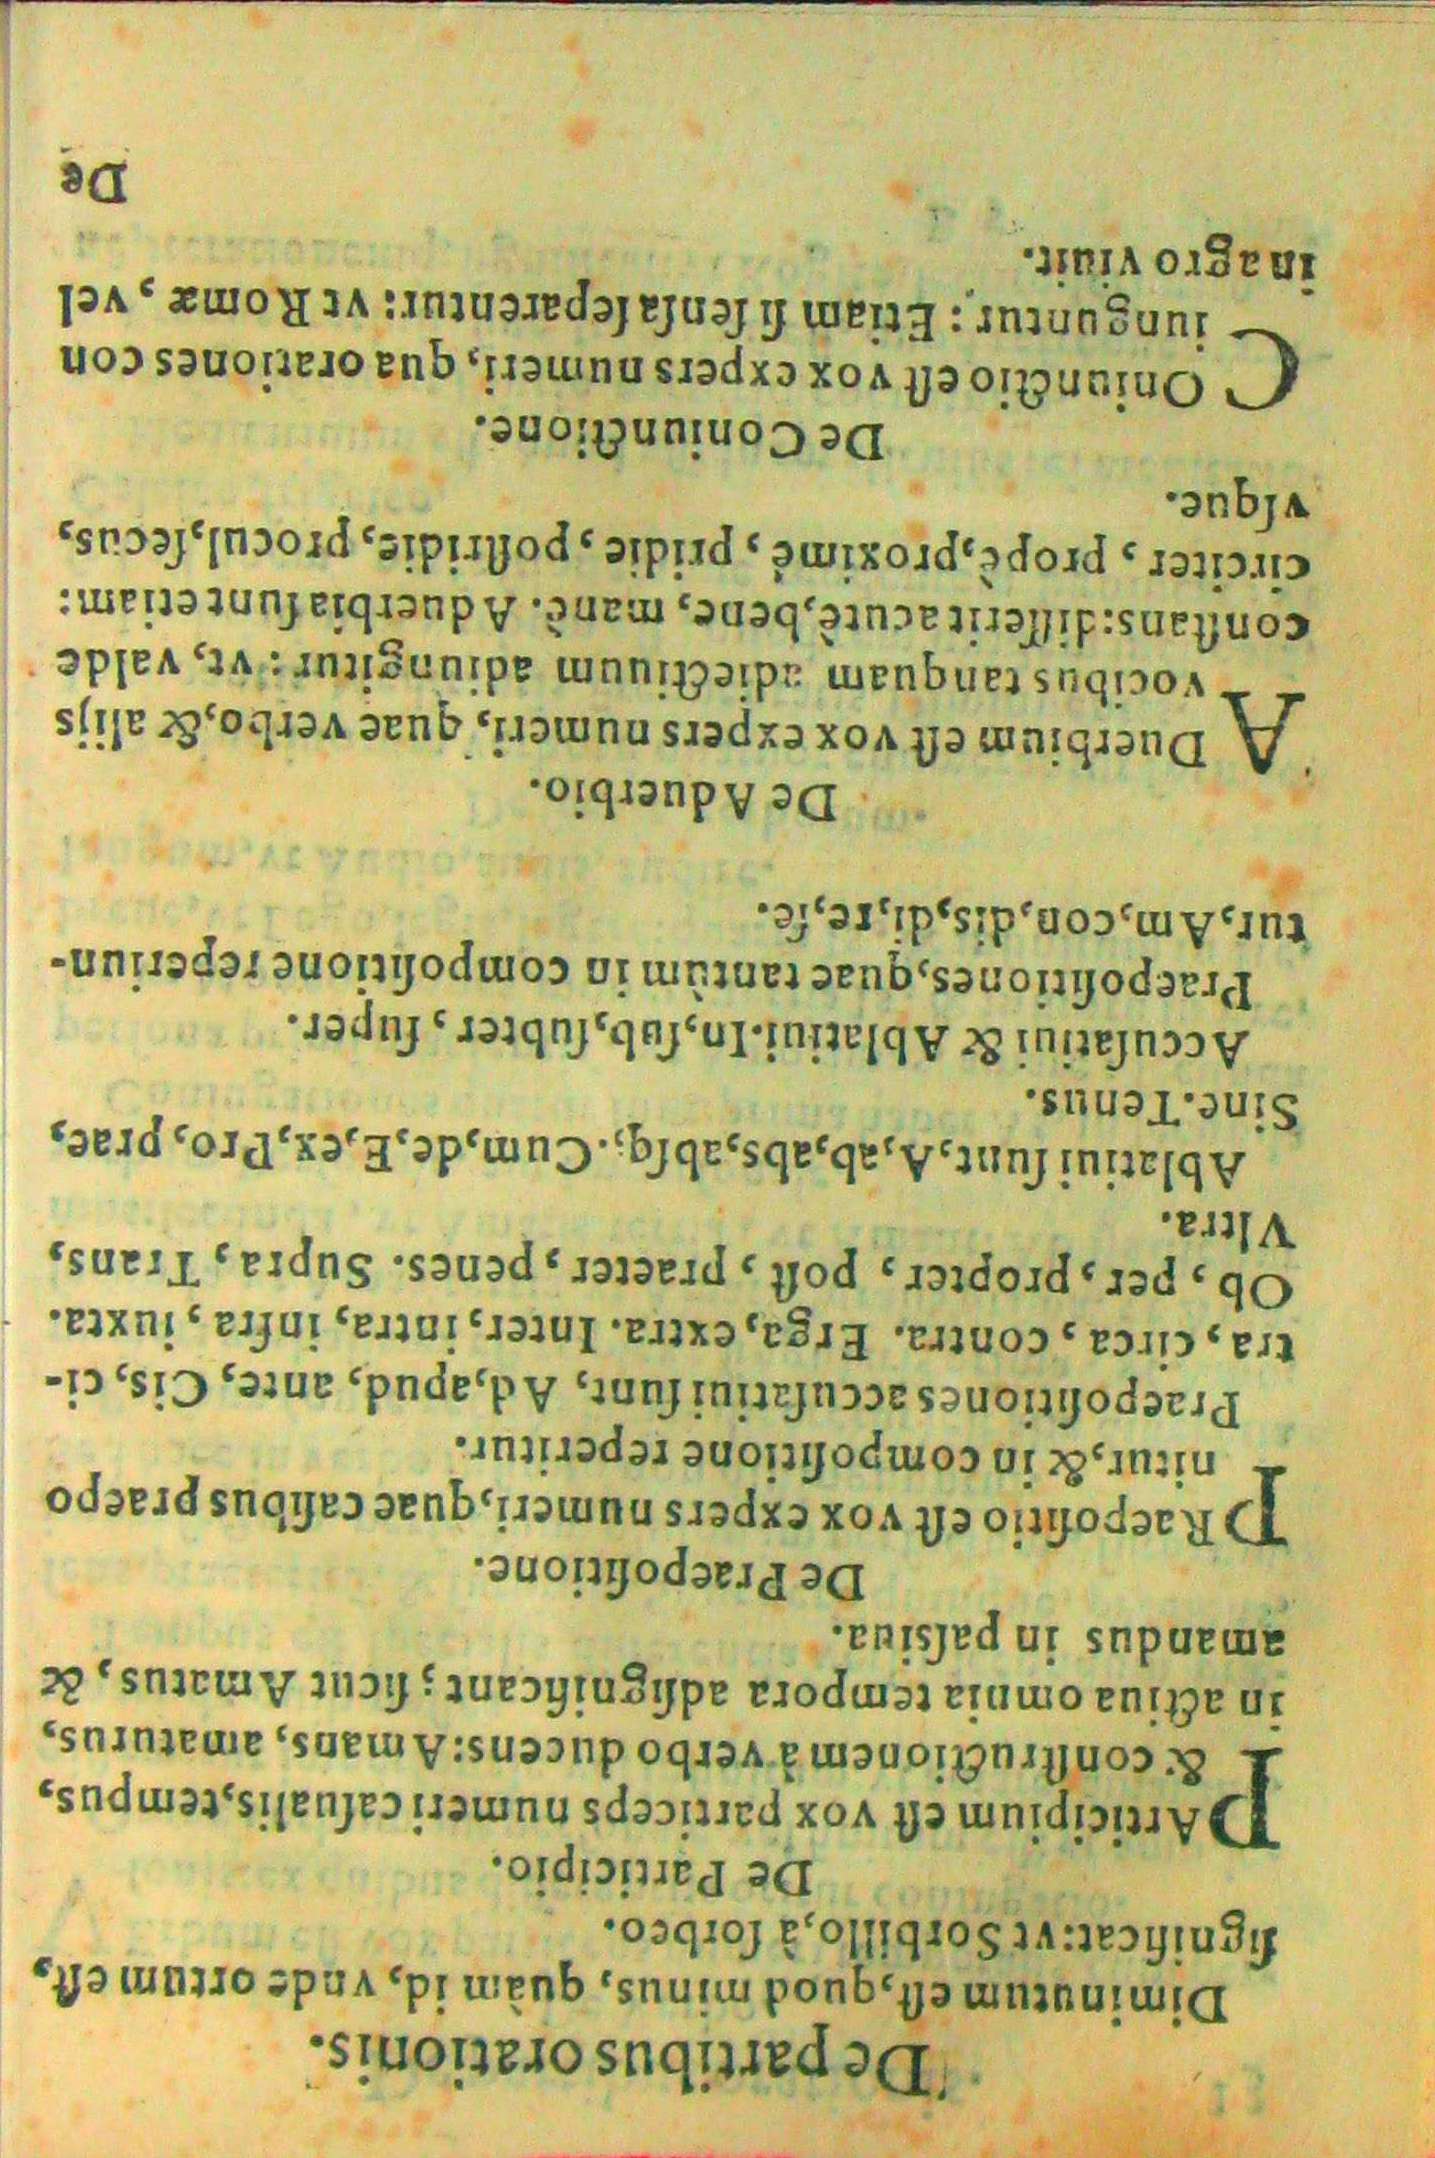 De partibus orationis.
Diminutum est, quod minus, quàm id, vnde ortum est,
significat: vt Sorbillo, à sorbeo.
De Participio.
PArticipium est vox particeps numeri casualis, tempus,
& constructionem à verbo ducens: Amans, amaturus,
in actiua omnia tempora adsignificant: sicut Amatus, &
amandus in passiua.
De Praepositione.
PRaepositio est vox expers numeri, quae casibus praepo
nitur, & in compositione reperitur.
Praepositiones accusatiui sunt, Ad, apud, ante, Cis, ci-
tra, circa, contra. Erga, extra. Inter, intra, infra, iuxta.
Ob, per, propter, post, praeter, penes. Supra, Trans,
Vltra.
Ablatiui sunt, A, ab, abs, absq;. Cum, de, E, ex, Pro, prae,
Sine. Tenus.
Accusatiui & Ablatiui. In, sub, subter, super.
Praepositiones, quae tantùm in compositione reperiun-
tur, Am, con, dis, di, re, se.
De Aduerbio.
ADuerbium est vox expers numeri, quae verbo, & alijs
vocibus tanquam adiectiuum adiungitur: vt, valde
constans: disserit acutè, bene, manè. Aduerbia sunt etiam:
circiter, propè, proximè, pridie, postridie, procul, secus,
vsque.
De Coniunctione.
COniunctio est vox expers numeri, qua orationes con
iunguntur: Etiam si sensa separentur: vt Romæ, vel
in agro viuit.
De